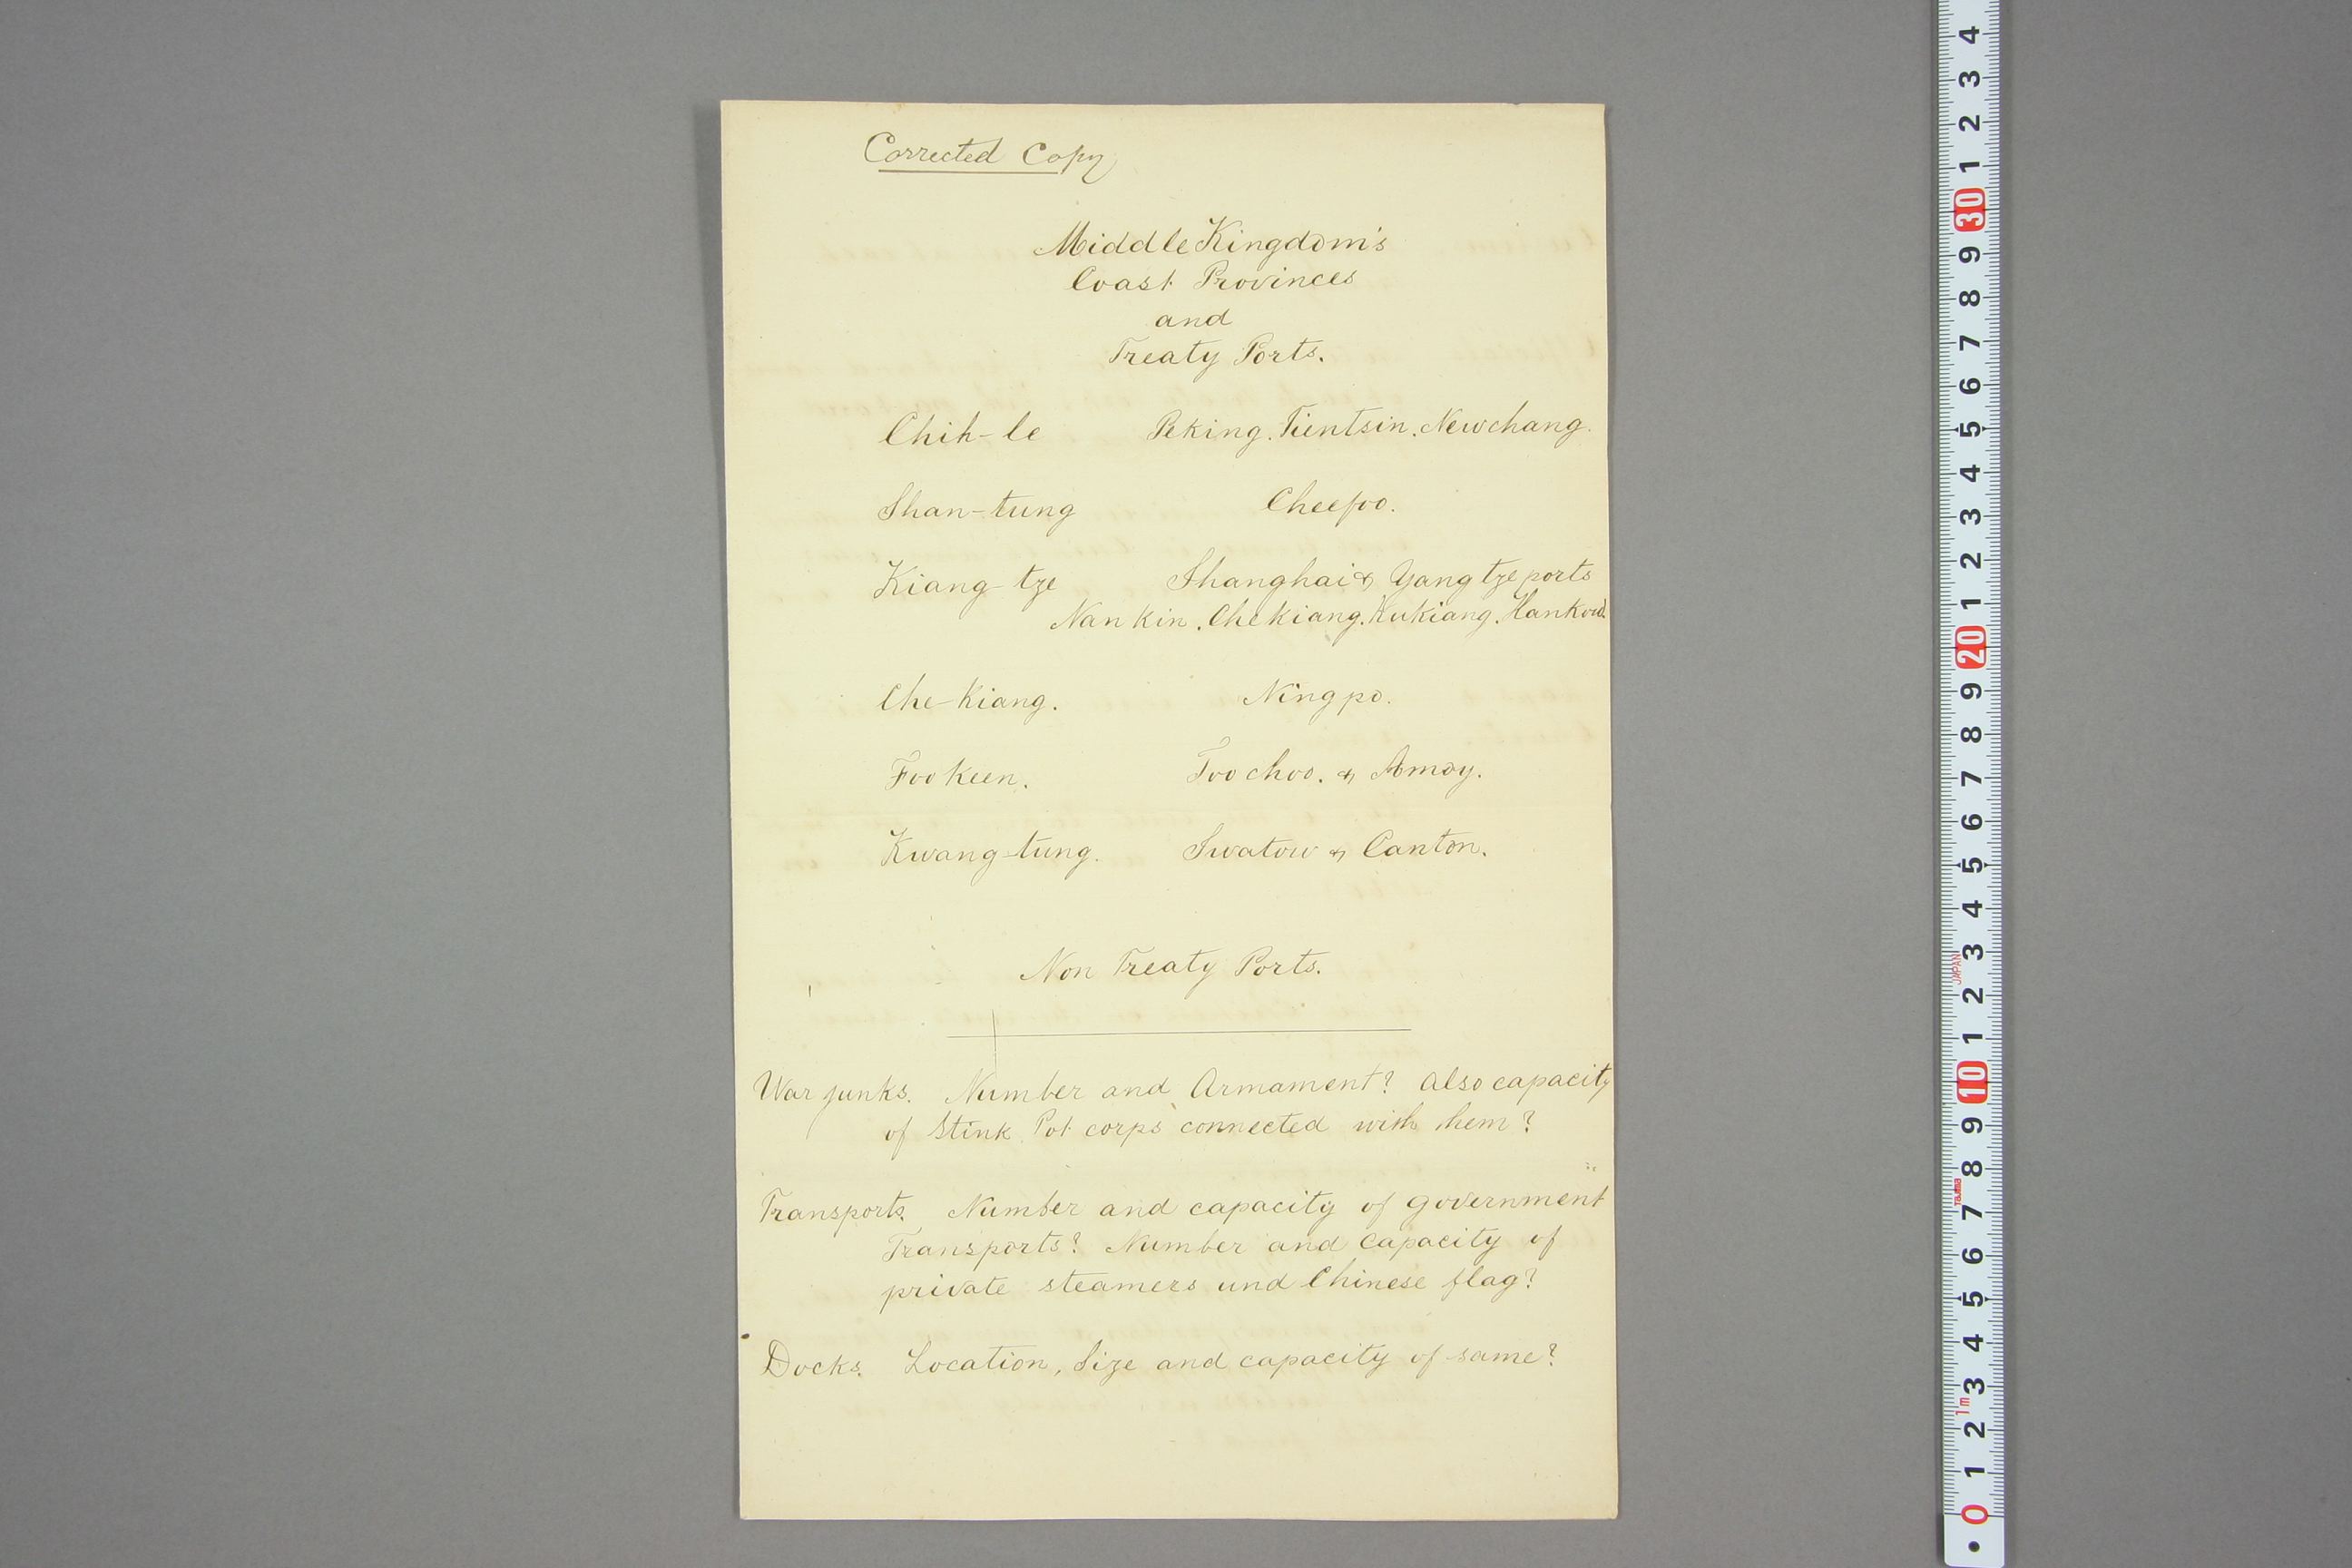 Corrected Copy
Middle Kingdom's
Coast Provinces
and
Treaty Ports.
Chih-le Peking. Tientsin. Newchang.
Shan-tung Cheefoo.
Kiang tze Shanghai & Yang tze ports
Nan kin. Chekiang. Kukiang. Hankow.
Che-Kiang. Ningpo.
Foo Keen. Foo choo. & Amoy.
Kwang-tung. Swatow & Canton.
Non Treaty Ports.
War junks. Number and Armament? Also capacity
of Stink Pot corps connected with them?
Transports. Number and capacity of government
Transports? Number and capacity of
private steamers und Chinese flag?
Docks. Location, Size and capacity of same?
4 3 2 1 30 9 8 7 6 5 4 3 2 1 20 9 8 7 6 5 4 3 2 1 10 9 8 7 6 5 4 3 2 1 0
JAPAN
Tajima
1m